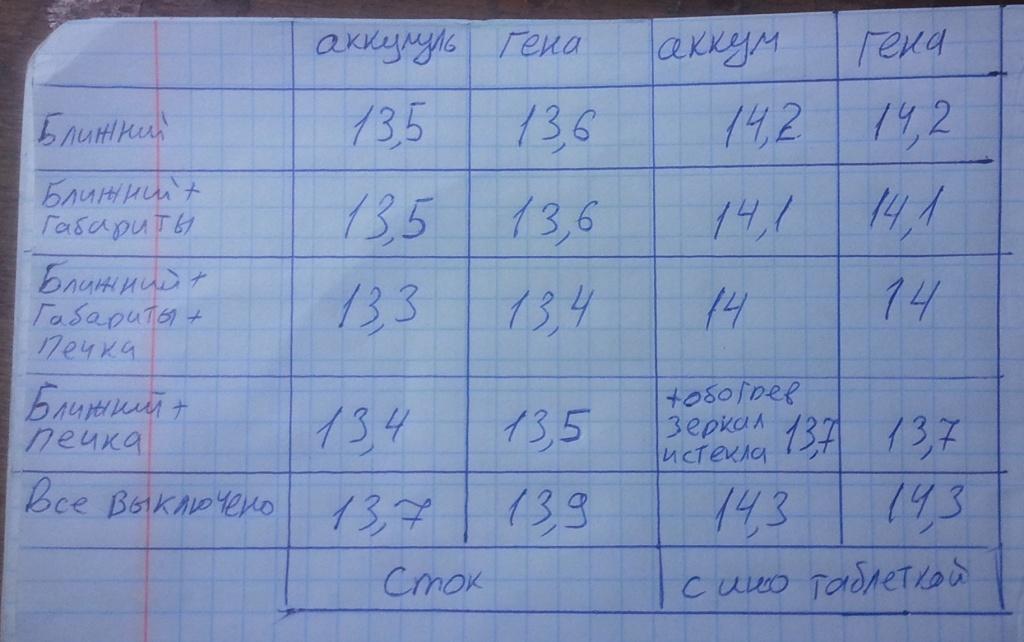 аккумуль Гена аккум Гена
Ближний 13,5 13,6 14,2 14,2
Ближний +
Габариты 13,5 13,6 14,1 14,1
Ближний +
Габариты + 13,3 13,4 14 14
Печка
Ближний +
Печка 13,4 13,5
+обогрев
зеркал 13,7 13,7
и стекла
Все выключено 13,7 13,9 14,3 14,3
Сток с ино таблеткой